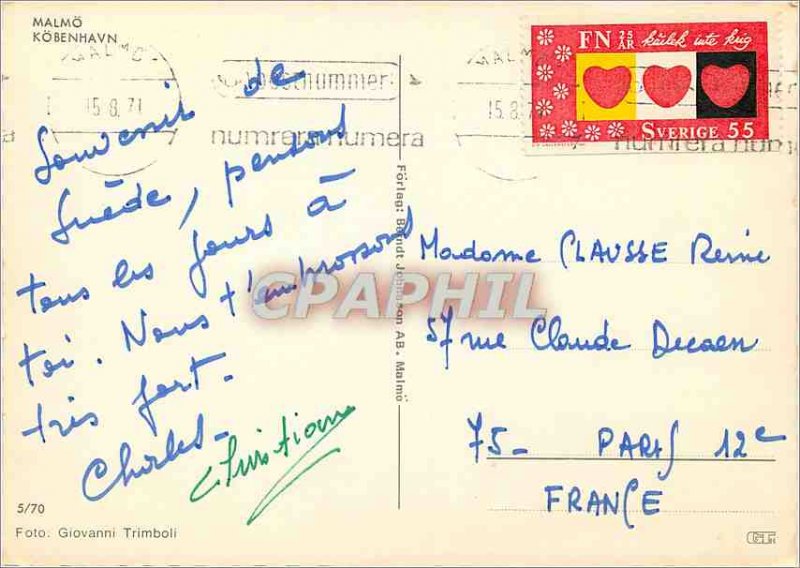 MALMÖ
KÖBENHAVN
MALMÖ
15.8.71
numrera numera
15.8.71
numrera numera
FN 25 ÅR kärlek inte krig
SVERIGE 55
Souvenir de
Suède, pensons
tous les jours à
toi. Nous t'embrassons
très fort.
Charles
Christiane
Förlag: Berndt Johnsson AB. Malmö
CPAPHIL
Madame CLAUSSE Reine
57 rue Claude Decaen
75- PARIS 12e
FRANCE
5/70
Foto: Giovanni Trimboli